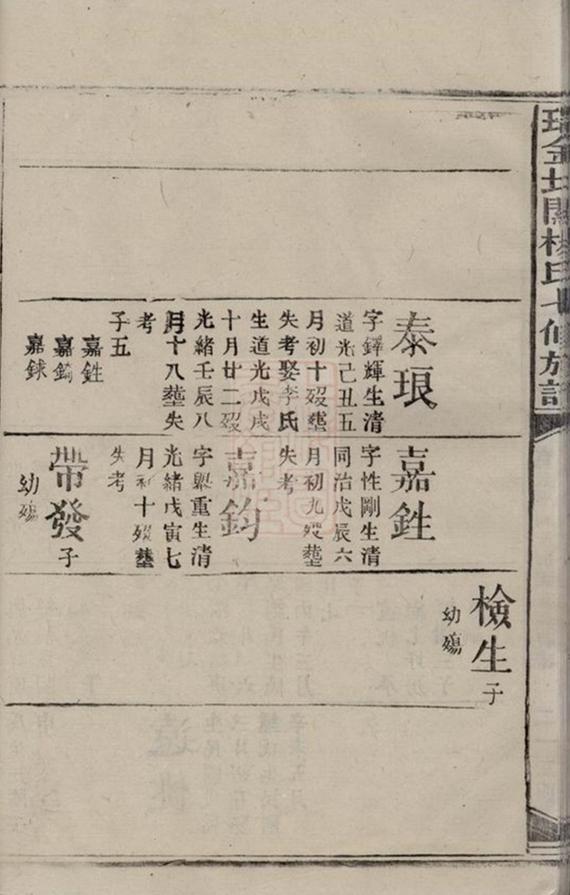 瑞金壬田楊氏七修族譜
檢生子
幼殤
泰琅
字鐸輝生清
道光己丑五
月初十歿塟
失考娶李氏
生道光戊戌
十月廿二歿
光緒壬辰八
月十八塟失
考
子五
嘉鉎
嘉鈞
嘉銶
嘉鉎
字性剛生清
同治戊辰六
月初九歿塟
失考
嘉鈞
字興重生清
光緒戊寅七
月初十歿塟
失考
帶發子
幼殤